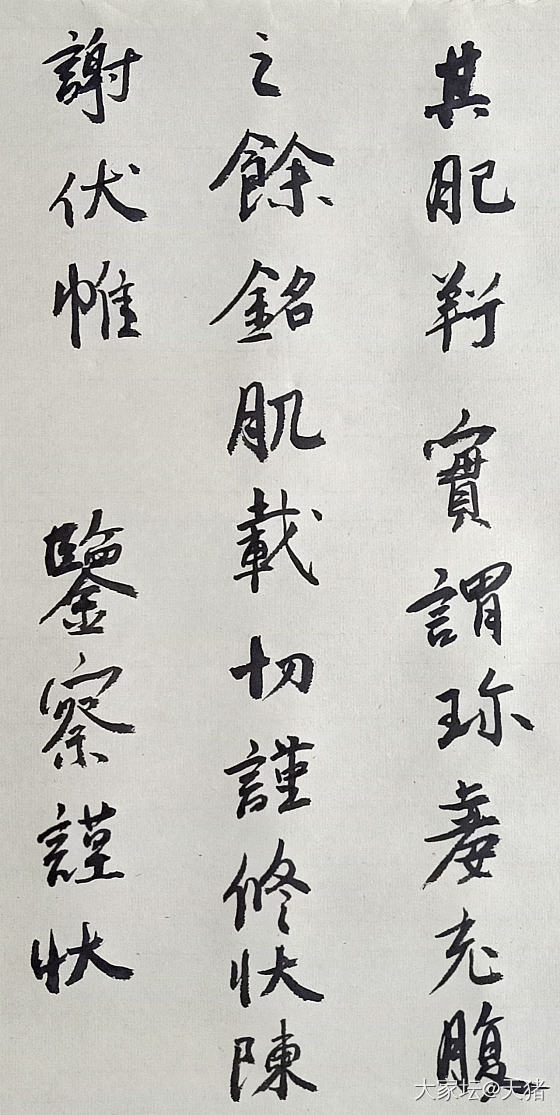 其肥羜實謂珍羞充腹
之餘銘肌載切謹修狀陳
謝伏惟 鑒察謹狀
大家坛@天猪